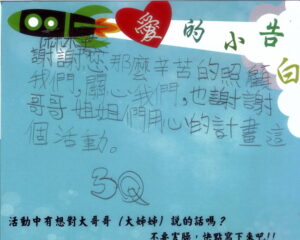 愛的小告白
謝謝您那麼辛苦的照顧
我們,關心我們,也謝謝
哥哥姐姐們用心的計畫這
個活動。
3Q
活動中有想對大哥哥(大姊姊)說的話嗎?
不要害臊,快點寫下來吧!!